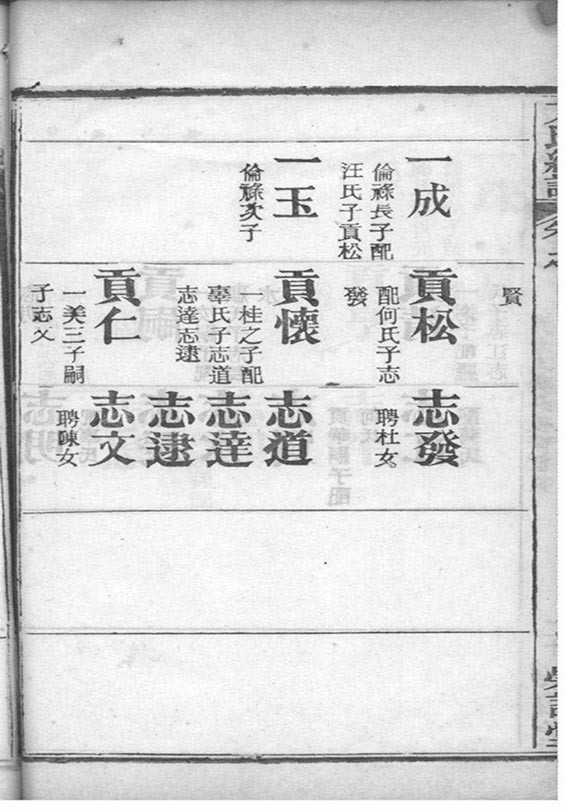 一成
倫祿長子配
汪氏子貢松
一玉
倫祿次子
賢
貢松
配何氏子志
發
貢懷
一桂之子配
辜氏子志道
志達志逮
貢仁
一美三子嗣
子志文
志發
聘杜女。
志道
志達
志逮
志文
聘陳女